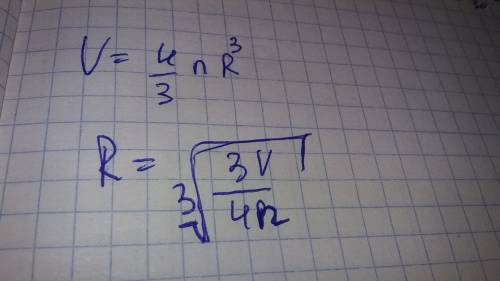 V = 4/3 π R³
R = ³√(3V/4π)